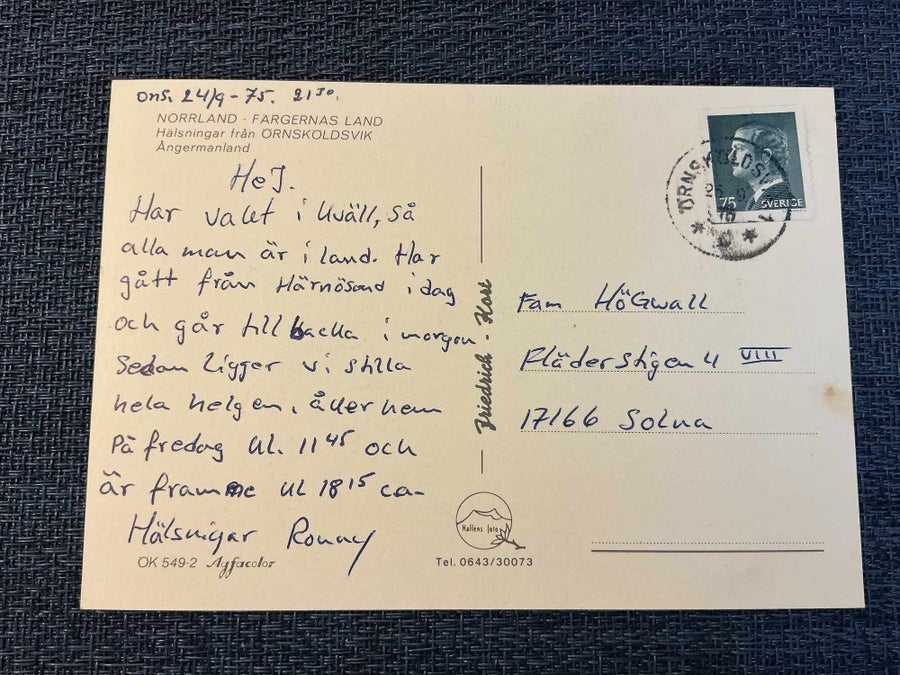 ons. 24/9-75. 21³⁰.
NORRLAND · FÄRGERNAS LAND
Hälsningar från ÖRNSKÖLDSVIK
Ångermanland
HeJ.
Har vaket i kväll, så
alla man är i land. Har
gått från Härnösand idag
och går till backa i morgon
Sedan Ligger vi stilla
hela helgen. åker hem
På fredag kl. 11⁴⁵ och
är framme kl 18¹⁵ ca-
Hälsnigar Ronny
ÖK 549-2 Agfacolor
Friedrich - Kort
Hallens foto
Tel. 0643/30073
75 SVERIGE
ÖRNSKÖLDSVIK
Fam HöGwall
Fläderstigen 4 VIII
17166 Solna